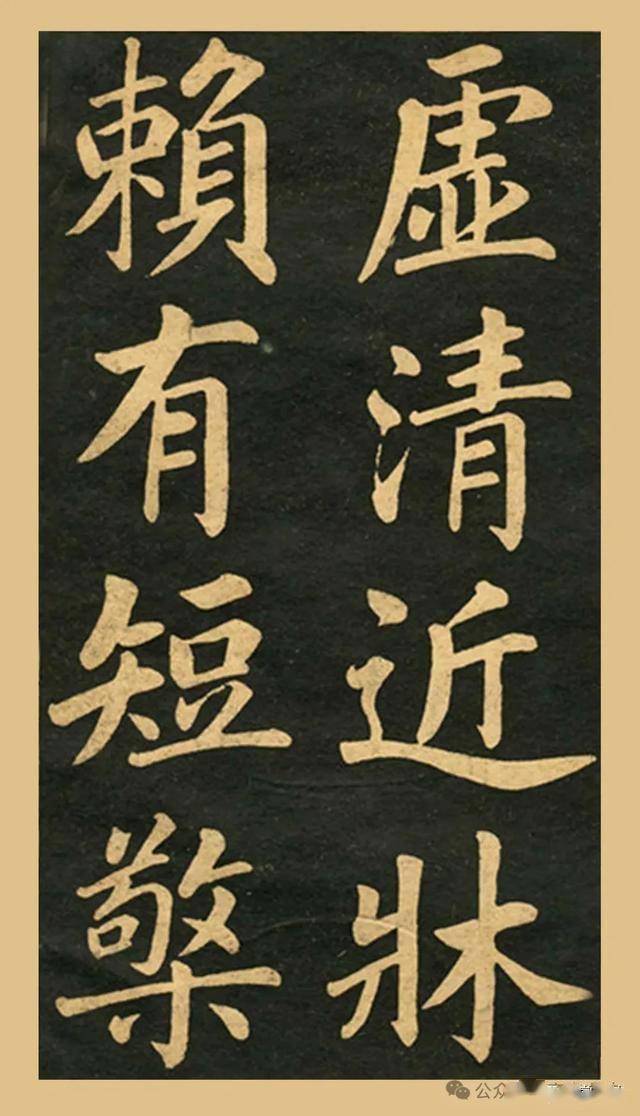 虛清近牀
賴有短檠
公众号